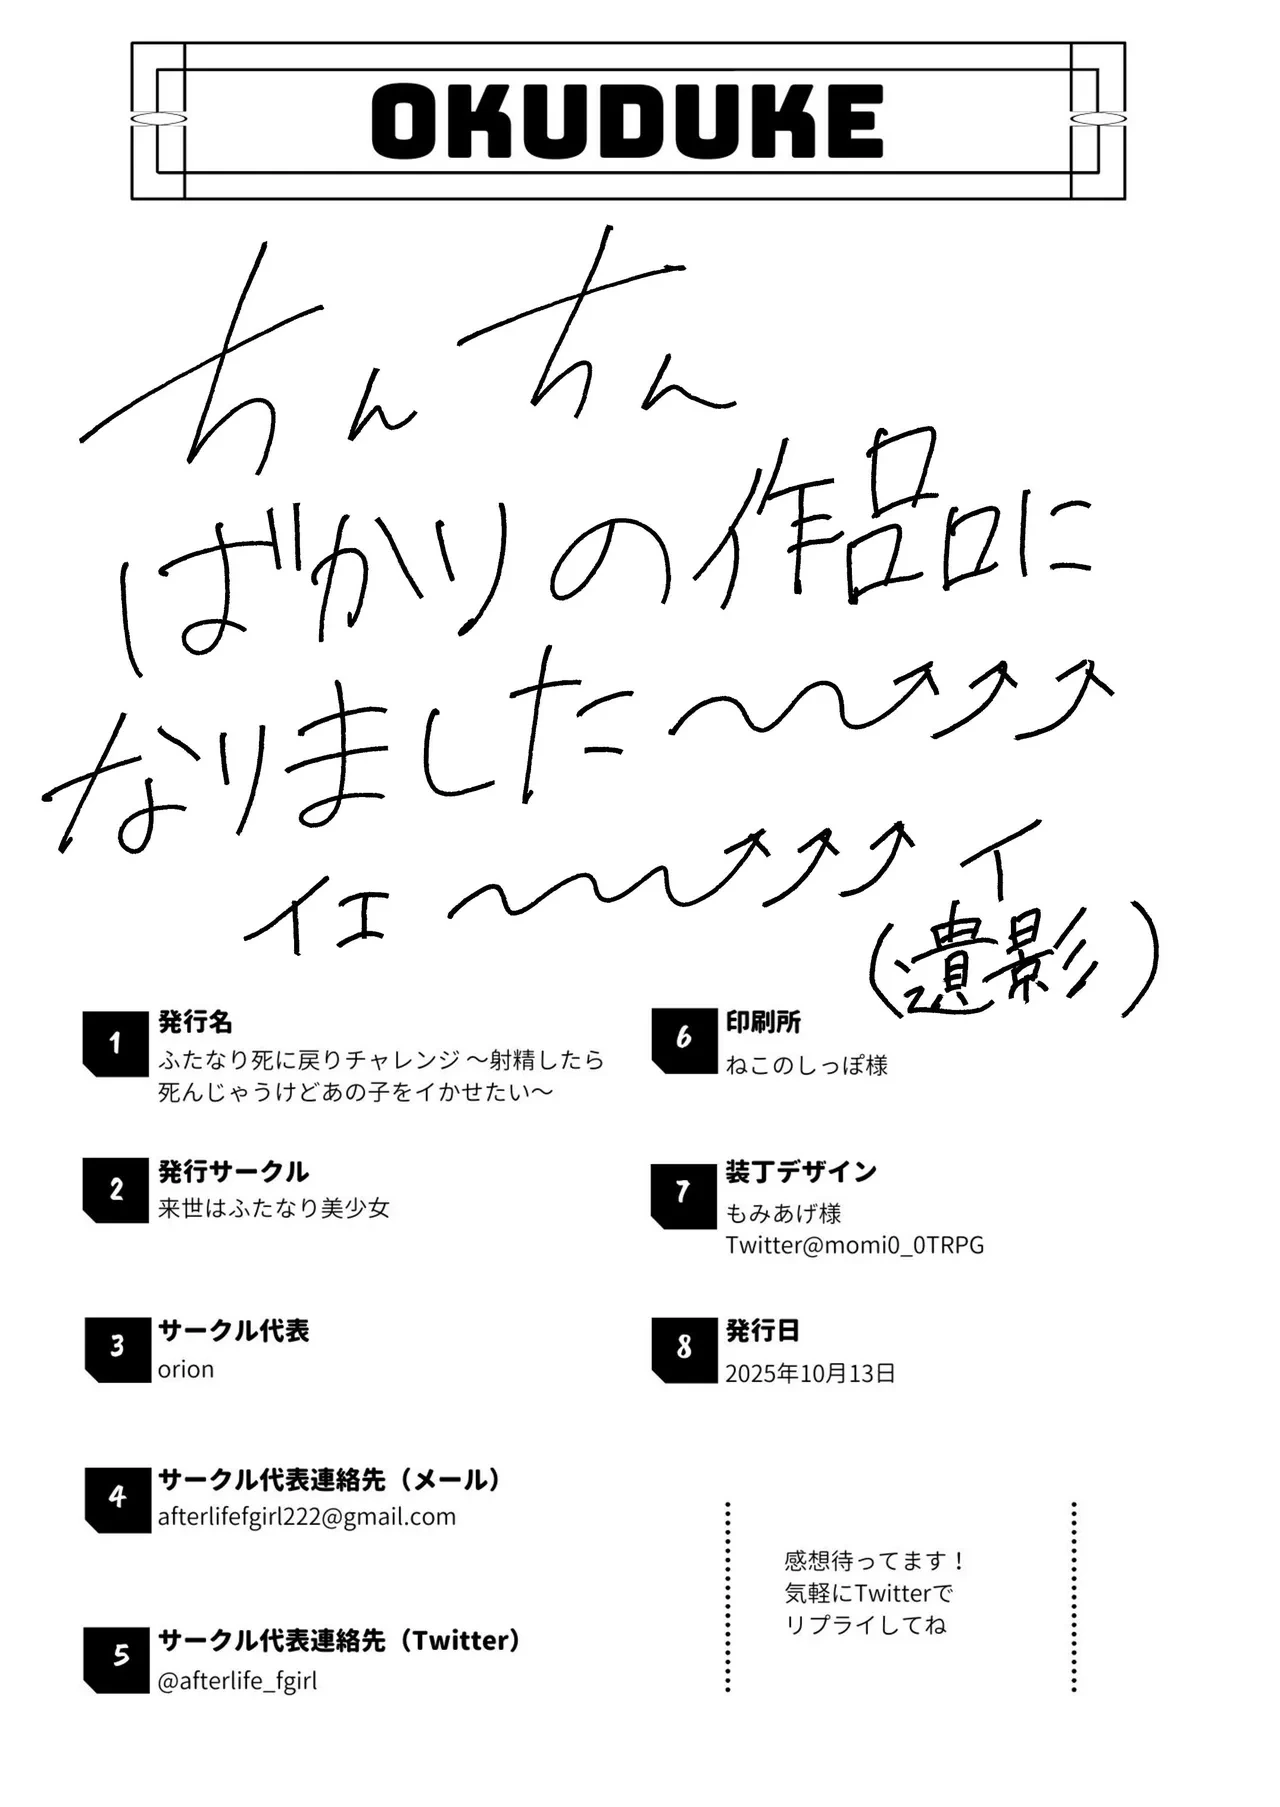 OKUDUKE
ちんちん
ばかりの作品に
なりました〜〜↗↗↗
イエ〜〜〜↗↗↗イ
(遺影)
1 発行名
ふたなり死に戻りチャレンジ〜射精したら
死んじゃうけどあの子をイかせたい〜
2 発行サークル
来世はふたなり美少女
3 サークル代表
orion
4 サークル代表連絡先（メール）
afterlifefgirl222@gmail.com
5 サークル代表連絡先（Twitter）
@afterlife_fgirl
6 印刷所
ねこのしっぽ様
7 装丁デザイン
もみあげ様
Twitter@momi0_0TRPG
8 発行日
2025年10月13日
感想待ってます！
気軽にTwitterで
リプライしてね